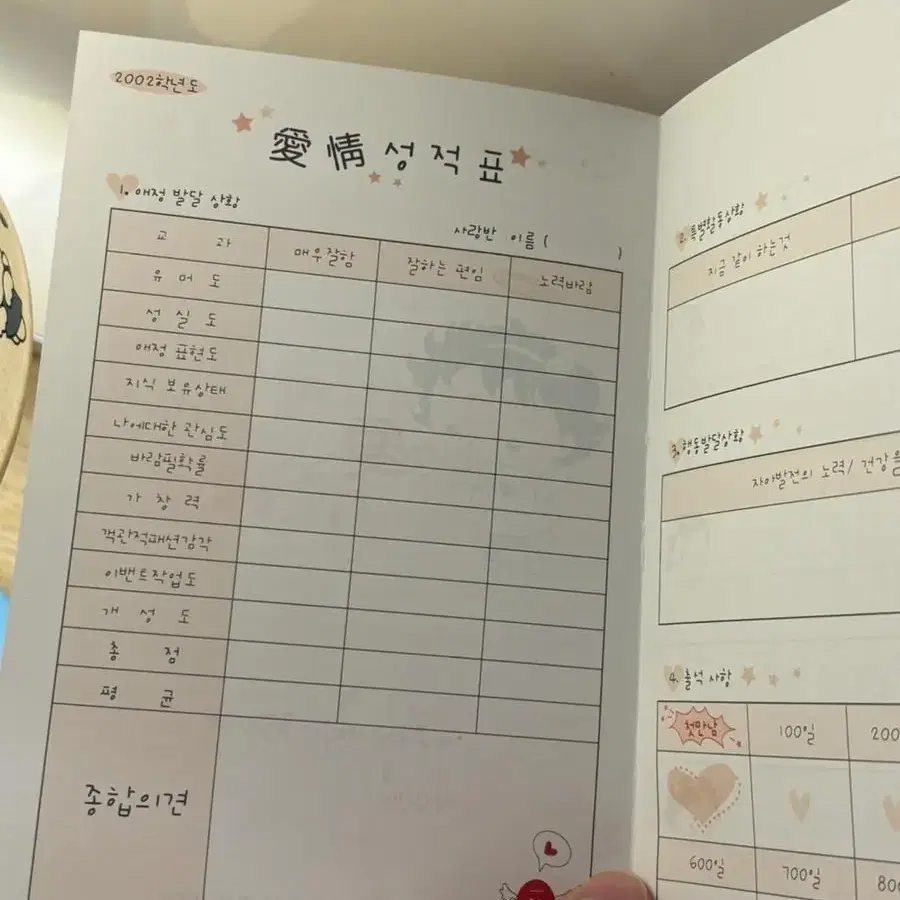 2002학년도
愛情 성적표
1. 애정 발달 상황
사랑반 이름 ( )
교 과 매우잘함 잘하는 편임 노력바람
유 머 도
성 실 도
애정 표현도
지식 보유상태
나에대한 관심도
바람필확률
가 창 력
객관적패션감각
이벤트작업도
개 성 도
총 점
평 균
종합의견
2. 특별활동상황
지금 같이 하는것
3. 행동발달상황
자아발전의 노력/ 건강을
4. 출석 사항
첫만남 100일 200
600일 700일 800